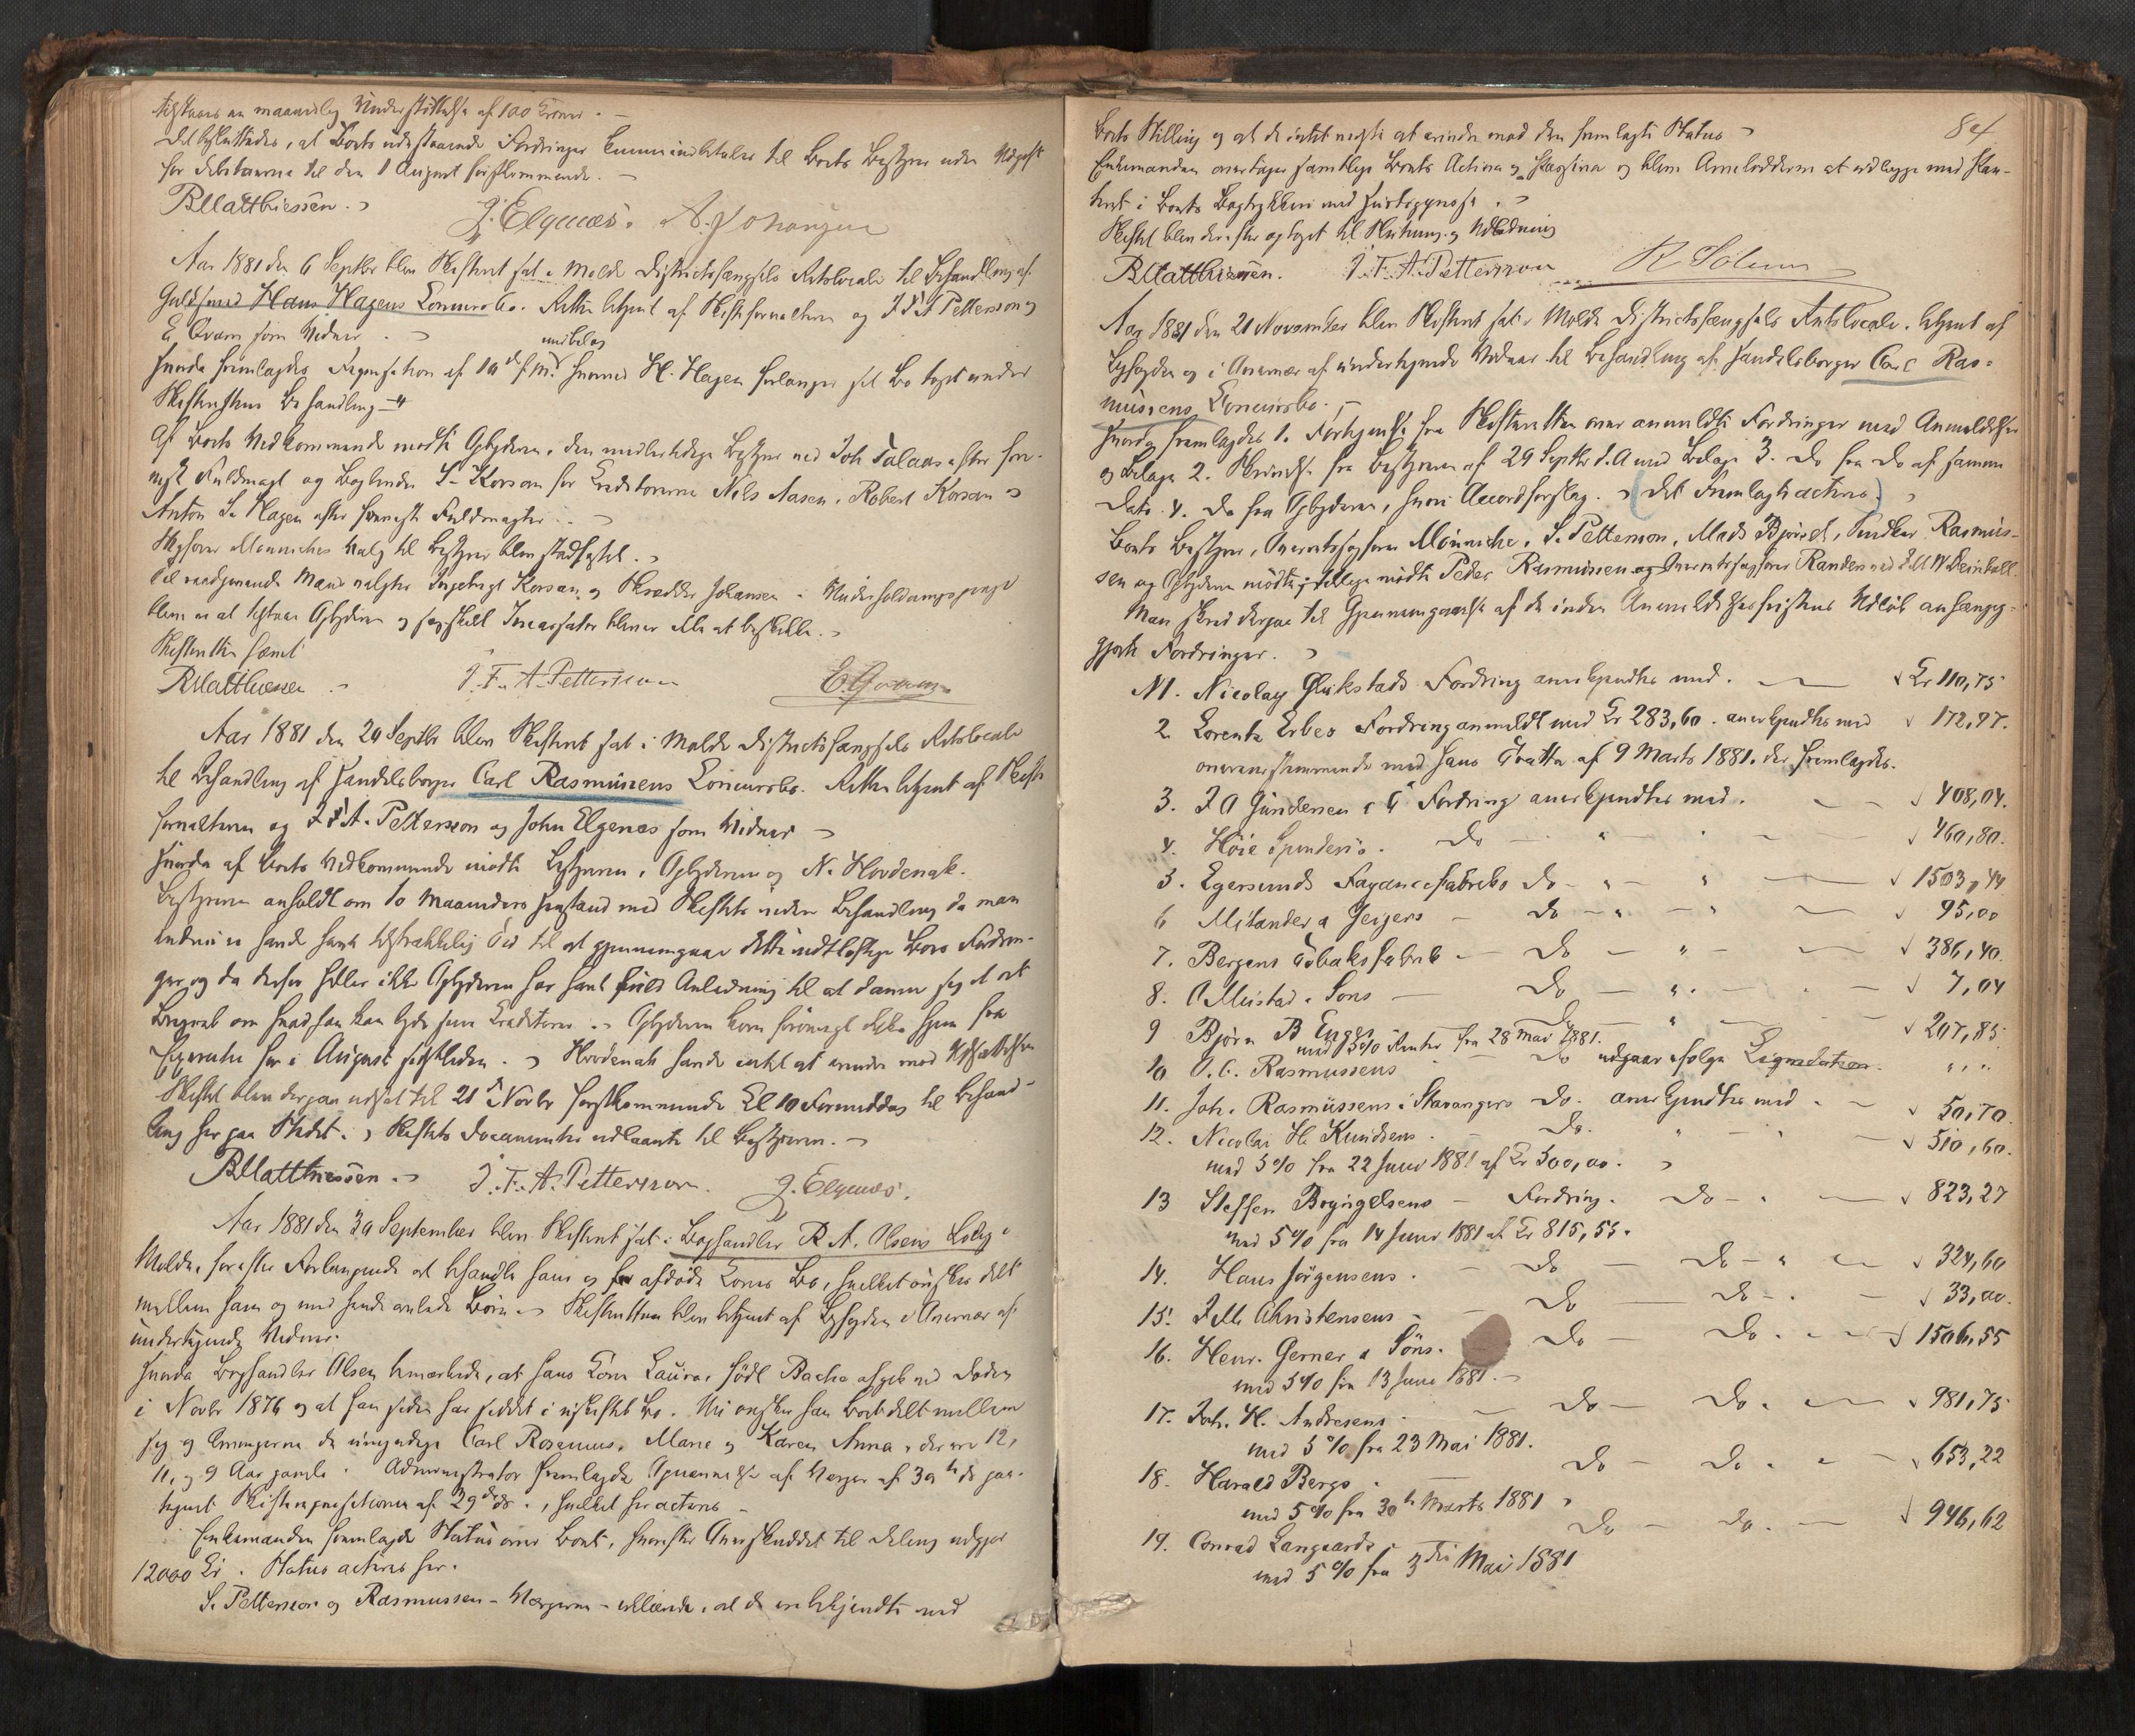 tilstaaes en maanedlig Understøttelse af 100 Kroner. –
Det besluttedes, at Boets udestaaende Fordringer kunne indbetales til Boets Bestyrer uden Udgift
for Debitorerne til den 1 August førstkommende. –
RMatthiessen.
J. Elgenæs. A. Johansen
Aar 1881 den 6 Septbr blev Skifteret sat i Molde Districtsfængsels Retslocale til Behandling af
Guldsmed Hans Hagens Concursbo. Retten betjent af Skifteforvalteren og J F A Petterson og
E. Qvam som Vidner. –
Hvorda fremlagdes Reqvisition af 10de f. M. med Bilag hvorved H. Hagen forlanger sit Bo taget under
Skifterettens Behandling –
Af Boets Vedkommende mødte Opbyderen, den midlertidige Bestyrer ved Joh Talaas efter fore-
vist Fuldmagt og Boghandler S. Korsan for Creditorerne Nils Aasen, Robert Korsan
Anton L. Hagen efter foreviste Fuldmagter. –
Sagfører Mønniches Valg til Bestyrer blev stadfæstet.
Til raadgivende Mænd valgtes Ingebrigt Korsan og Skrædder Johansen. Underholdningspenge
blev ei at tilstaae Opbyderen og særskilt Incassator bliver ikke at beskikke.
Skifteretten hævet
RMatthiessen
J. F. A. Petterson
E Qvam
Aar 1881 den 24 Septbr blev Skifteret sat i Molde Districtsfængsels Retslocale
til Behandling af Handelsborger Carl Rasmussens Concursbo. Retten betjent af Skifte
forvalteren og J F A. Petterson og John Elgenæs som Vidner –
Hvorda af Boets Vedkommende mødte Bestyreren, Opbyderen og N. Hovdenak.
Bestyreren anholdt om to Maaneders Henstand med Skiftets videre Behandling da man
endnu ei havde havt tilstrækkelig Tid til at gjennemgaae dette vidtløftige Boes Fordrin-
ger og da derfor heller ikke Opbyderen har havt fuld Anledning til at danne sig et
Begreb om hvad han kan byde sine Creditorer. Opbyderen kom forøvrigt ikke hjem fra
før i August sidstleden. Hovdenak havde intet at erindre mod Udsættelsen
Skiftet blev derpaa udsat til 21de Novbr førstkommende Kl 10 Formiddag til Behand-
ling her paa Stedet. Skiftets Documenter udlaantes til Bestyreren. –
RMatthiessen. J. F. A. Petterson. J. Elgenæs.
Aar 1881 den 30 September blev Skifteret sat i Boghandler R. A. Olsens Bolig i
Molde, for efter Forlangende at behandle hans og afdøde Kones Bo, hvilket ønskes delt
mellem ham og med hende avlede Børn. Skifteretten blev betjent af Byfogden i Overvær af
undertegnede Vidner.
Hvorda Boghandler Olsen bemærkede, at hans Kone Laura, født Bache afgik ved Døden
i Novbr 1876 og at han siden har siddet i uskiftet Bo. Nu ønsker han Boet delt mellem
sig og Arvingerne de umyndige Carl Rasmus, Marie og Karen Anna, der ere 12,
11, og 9 Aar gamle. Administrator fremlagde Opnævnelse af Værger af 30te ds paa-
tegnet Skiftereqvisitionen af 29de ds., hvilket her acteres –
Enkemanden fremlagde Status over Boet, hvorefter Overskuddet til Deling udgjør
12000 Kr. Status acteres her.
S. Petterson og Rasmussen – Værgerne – erklærede, at de ere bekjendte med
84
Boets Stilling og at de intet vidste at erindre mod den fremlagte Status –
Enkemanden overtager samtlige Boets Activa og Passiva og blev Arvelodderne at udlægge med Pan-
teret i Boets
Skiftet blev derefter optaget til Slutning og Udlodning
RMatthiessen. J. F. A. Petterson R. Solem
Aar 1881 den 21 November blev Skifteret sat i Molde Districtsfængsels Retslocale, betjent af
Byfogden og i Overvær af undertegnede Vidner til Behandling af Handelsborger Carl Ras-
mussens Concursbo. –
Hvorda fremlagdes 1. Fortegnelse fra Skifteretten over anmeldte Fordringer med Anmeldelser
og Bilage 2. Skrivelse fra Bestyreren af 29 Septbr d. A med Bilage 3. Do fra Do af samme
Dato. 4. Do fra Opbyderen, hvori Accordforslag. (Det Fremlagte acteres)
Boets Bestyrer, Overretssagfører Mönniche, S. Petterson, Mads Bjørset, Rasmus-
sen og Opbyderen mødte; tillige mødte Peder Rasmussen og Overretssagfører Randers ved E. M W Deinboll.
Man skred derpaa til Gjennemgaaelse af de inden Anmeldelsesfristens Udløb anhængig-
gjorte Fordringer.
N 1. Nicolay Glükstads Fordring anerkjendtes med. — Kr 110,75
2. Lorentz Erbes Fordring anmeldt med Kr 283,60. anerkjendtes med 172,97.
overensstemmende med hans Tratte af 9 Marts 1881. der fremlagdes.
3. J A Gundersen & C Fordring anerkjendtes med. — 408,04.
4. Høie Spinderis. Do — " — 460,80.
5. Egersunds Fayancefabriks Do - " — " — 1503,44
6 Melander & Geijers — Do — " — 95,00
7. Bergens Tobaksfabrik — Do — " — 386,40.
8. O Mustad & Sons — Do — " — 7,04
9 Bjørn B Enges Do — " — 207,85
med 5% Renter fra 28 Mai 1881.
10 O. C. Rasmussens Do udgaar ifølge Liqvidation. " "
11. Joh. Rasmüssens i Stavangers Do. anerkjendtes med — 50,70.
12. Nicolai H. Knudsens. Do. " — 510,60.
med 5% fra 22 Juni 1881 af Kr 500,00.
13 Steffen Bryngelsens — Fordring. Do — 823,27
med 5% fra 14 Juni 1881 af Kr 815,55.
14. Hans Jörgensens. Do — Do — " 324,60
15. J M. Christensens — Do Do — 33,00.
16. Henr. Gerner & Söns. Do — Do. — 1506,55
med 5% fra 13 Juni 1881. –
17. Joh. H. Andresens — Do — Do. — 981,75
med 5% fra 23 Mai 1881.
18. Harald Bergs. Do — Do. — 653,22
med 5% fra 30te Marts 1881
19. Conrad Langaards Do — Do. — 946,62
med 5% fra 3die Mai 1881